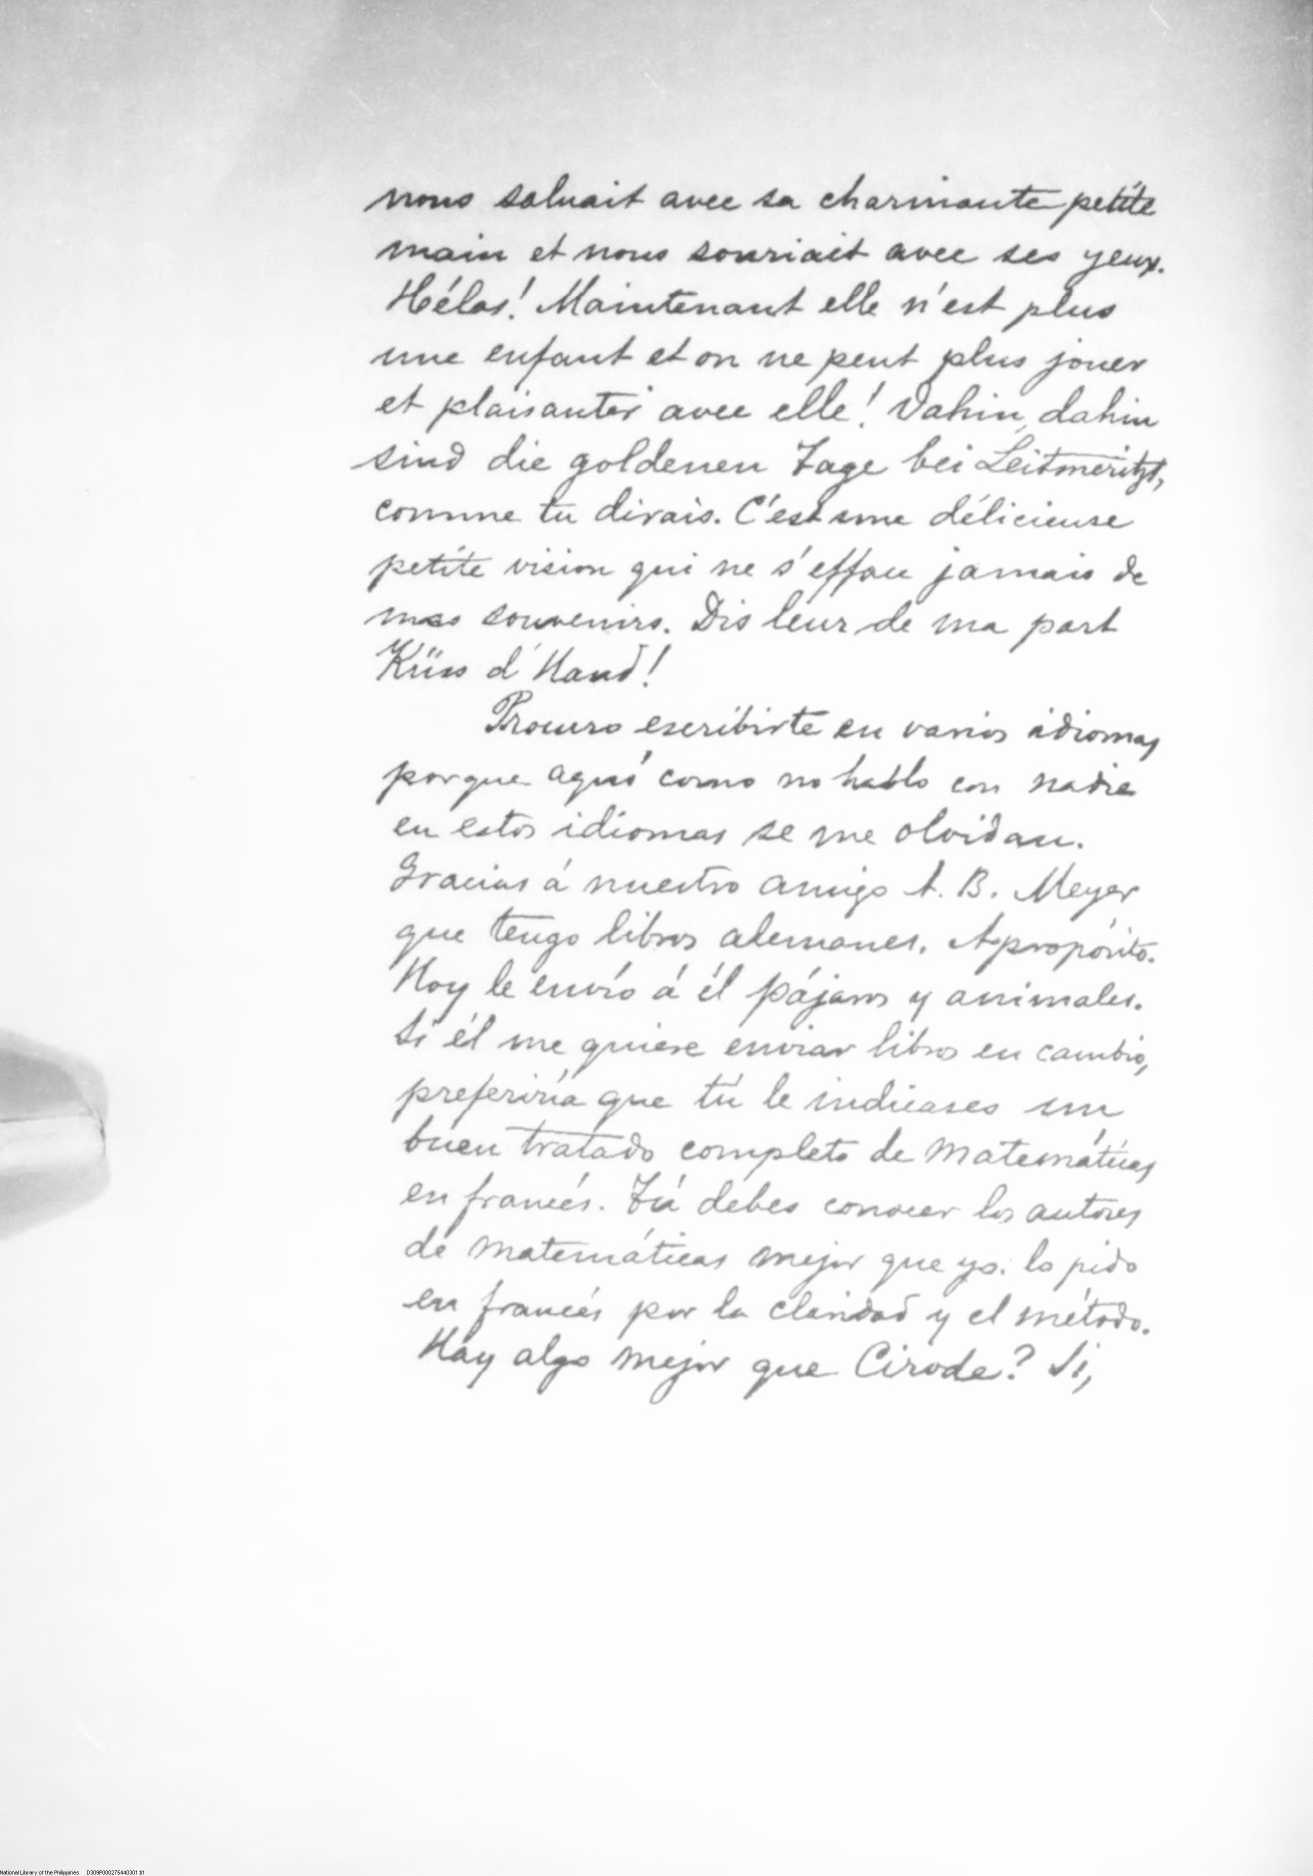 nous saluait avec sa charmante petite
main et nous souriait avec ses yeux.
Hélas! Maintenant elle n'est plus
une enfant et on ne peut plus jouer
et plaisanter avec elle! Dahin, dahin
sind die goldenen Tage bei Leitmeritzt,
comme tu dirais. C'est une délicieuse
petite vision qui ne s'efface jamais de
mes souvenirs. Dis leur de ma part
Küss d'Hand!
Procuro escribirte en varios idiomas
porque aquí como no hablo con nadie
en estos idiomas se me olvidan.
Gracias á nuestro amigo A. B. Meyer
que tengo libros alemanes. Apropósito.
Hoy le envío á él pájaros y animales.
Si él me quiere enviar libros en cambio,
preferiría que tú le indicases un
buen tratado completo de Matemáticas
en francés. Tú debes conocer los autores
de matemáticas mejor que yo. lo pido
en francés por la claridad y el método.
Hay algo mejor que Cirode? Si,
National Library of the Philippines